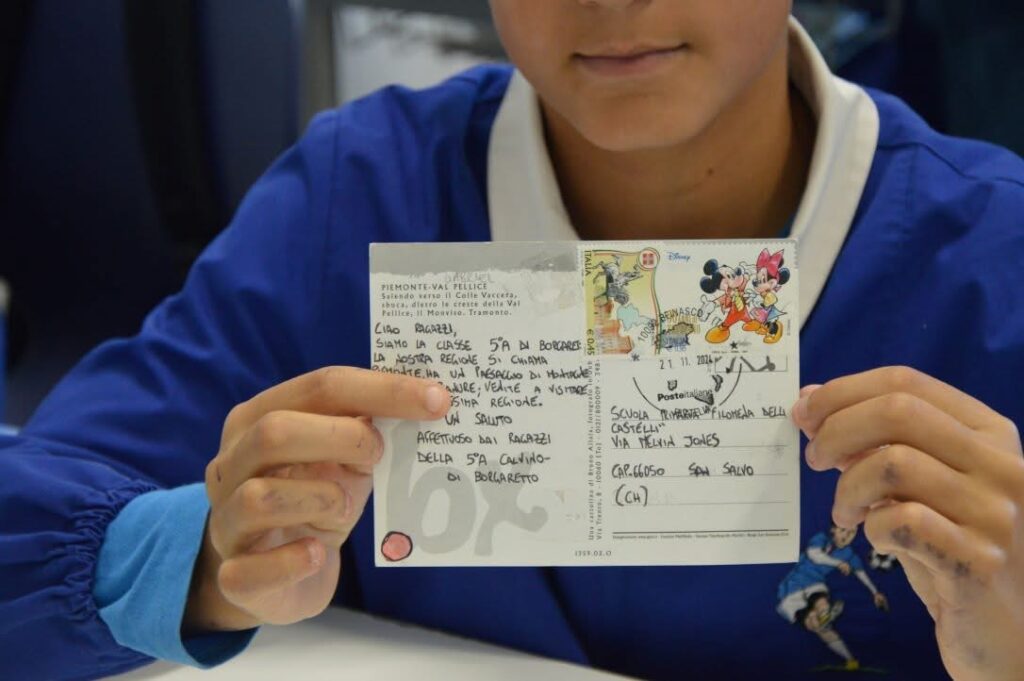 PIEMONTE-VAL PELLICE
Salendo verso il Colle Vaccera,
sboca, dietro le creste della Val
Pellice, il Monviso. Tramonto.
CIAO RAGAZZI,
SIAMO LA CLASSE 5°A DI BORGARE
LA NOSTRA REGIONE SI CHIAMA
PIEMONTE, HA UN PAESAGGIO DI MONTAGNE
VENITE A VISITARE
REGIONE.
UN SALUTO
AFFETTUOSO DAI RAGAZZI
DELLA 5°A CALVINO-
DI BORGARETTO
ITALIA
€0,45
Disney
BEINASCO
21 11. 2024
Posteitaliane
SCUOLA PRIMARIA "FILOMENA DELLI
CASTELLI"
VIA MELVIN JONES
CAP.66050 SAN SALVO
(CH)
Una cartolina di Bruno Allaix, fotografo in
1359.02.0